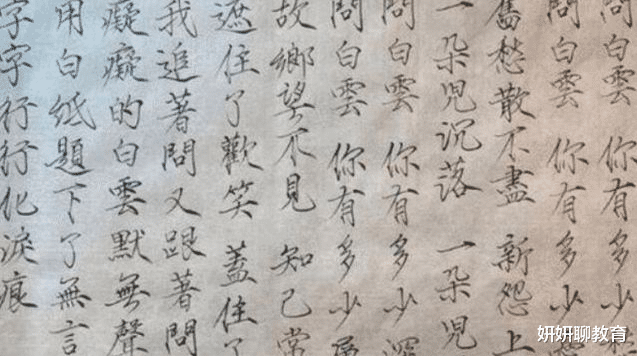 問白雲 你有多少
問白雲 你有多少
舊愁散不盡 新怨上
一朵兒沉落 一朵兒
問白雲 你有多少深
問白雲 你有多少
故鄉望不見 知己常
遮住了歡笑 蓋住了
我追著問又跟著問
癡癡的白雲默無聲
用白紙題下了無言
字字行行化淚痕
妍妍聊教育